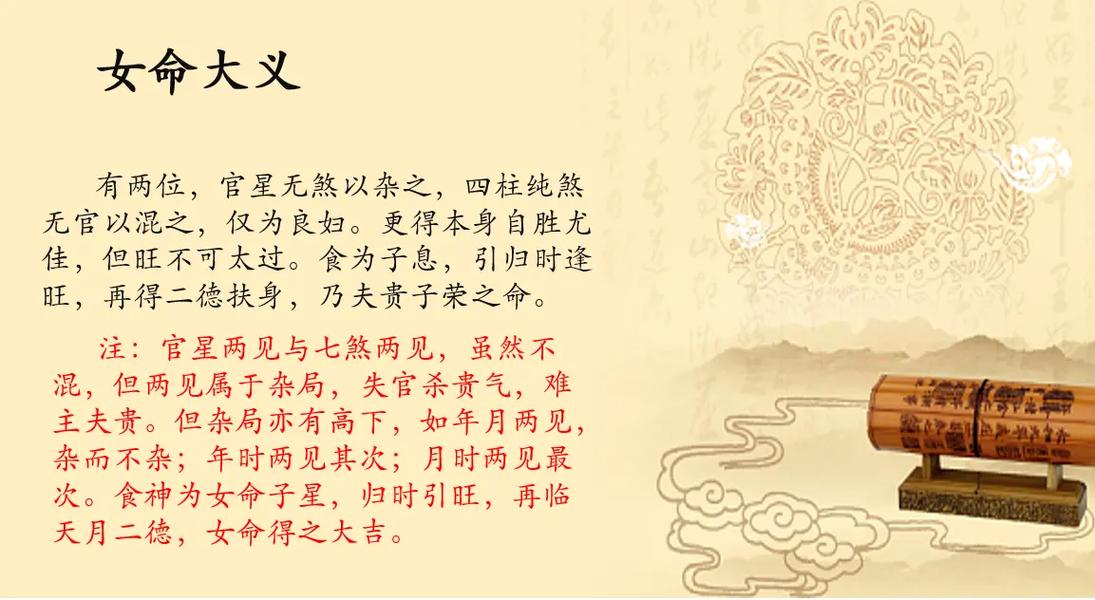 女命大义
有两位，官星无煞以杂之，四柱纯煞
无官以混之，仅为良妇。更得本身自胜尤
佳，但旺不可太过。食为子息，引归时逢
旺，再得二德扶身，乃夫贵子荣之命。
注：官星两见与七煞两见，虽然不
混，但两见属于杂局，失官杀贵气，难
主夫贵。但杂局亦有高下，如年月两见，
杂而不杂；年时两见其次；月时两见最
次。食神为女命子星，归时引旺，再临
天月二德，女命得之大吉。